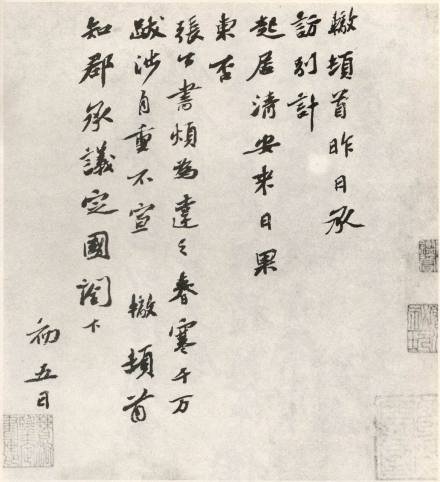 轍頓首昨日承
訪別計
起居清安來日果
東否
張公書煩為達之春寒千万
跋涉自重不宣　轍頓首
知郡承議定國閣下
初五日